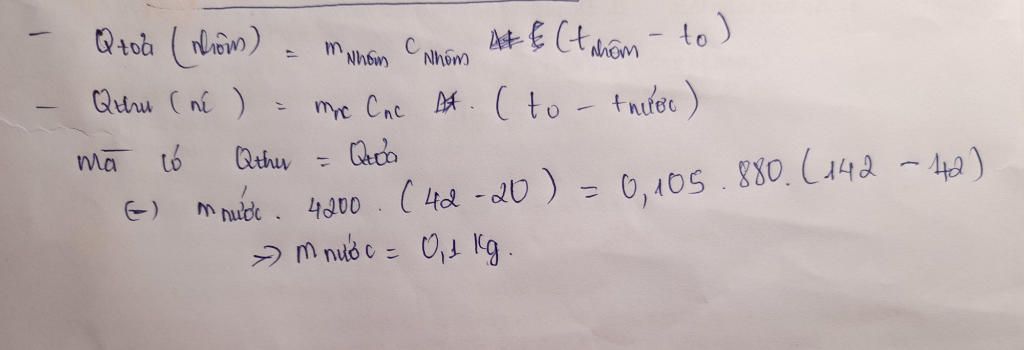 - Qtoả (nhôm) = mNhôm CNhôm (tNhôm - to)
- Qthu (nc) = mnc Cnc . (to - tnước)
Mà có Qthu = Qtoả
(=) mnước . 4200 . (42 - 20) = 0,105 . 880 . (142 - 42)
=> mnước = 0,1 Kg.